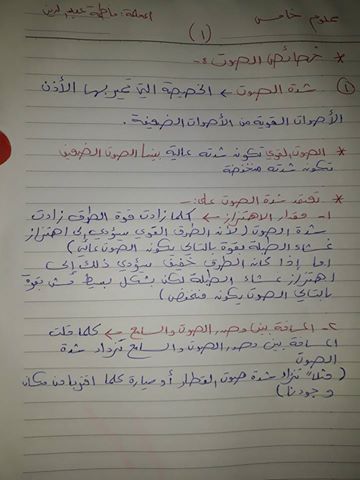 علوم خامس
المعلمة: فاطمة
(١)
* خصائص الصوت :-
① شدة الصوت ← الخاصية التي تميز بها الأذن
الأصوات القوية من الأصوات الضعيفة .
* الصوت القوي تكون شدته عالية بينما الصوت الضعيف
تكون شدته منخفضة
* تعتمد شدة الصوت على :-
١- مقدار الاهتزاز ← كلما زادت قوة الطرق زادت
شدة الصوت (لأنه الطرق القوي سيؤدي إلى اهتزاز
غشاء الطبلة بقوة بالتالي يكون الصوت عالي)
أما إذا كان الطرق خفيف سيؤدي ذلك إلى
اهتزاز غشاء الطبلة لكن بشكل بسيط مش بقوة
بالتالي الصوت يكون منخفض)
٢- المسافة بين مصدر الصوت والسامع ← كلما قلت
المسافة بين مصدر الصوت والسامع تزداد شدة
الصوت
(مثلاً تزداد شدة صوت القطار أو سيارة كلما اقتربا من مكان
وجودنا)